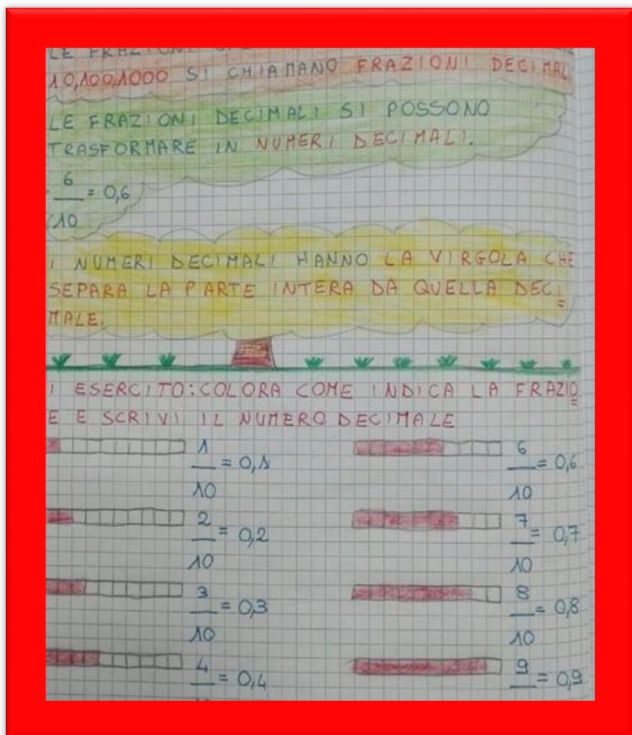 LE FRAZIONI
10,100,1000 SI CHIAMANO FRAZIONI DECIMAL
LE FRAZIONI DECIMALI SI POSSONO
TRASFORMARE IN NUMERI DECIMALI.
6
= 0,6
10
I NUMERI DECIMALI HANNO LA VIRGOLA CHE
SEPARA LA PARTE INTERA DA QUELLA DECI=
MALE.
I ESERCITO: COLORA COME INDICA LA FRAZIO
E E SCRIVI IL NUMERO DECIMALE
1
= 0,1
10
6
= 0,6
10
2
= 0,2
10
7
= 0,7
10
3
= 0,3
10
8
= 0,8
10
4
= 0,4
9
= 0,9